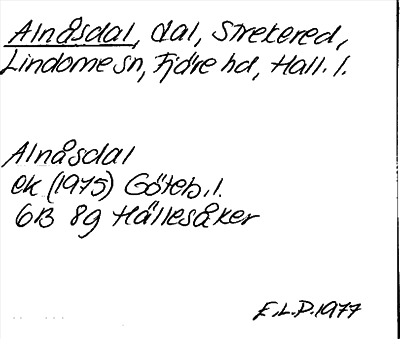 Alnåsdal, dal, Strekered,
Lindome sn, Fjäre hd, Hall. l.
Alnåsdal
ek (1975) Göteb. l.
6B 8g Hällesåker
E.L.P. 1977